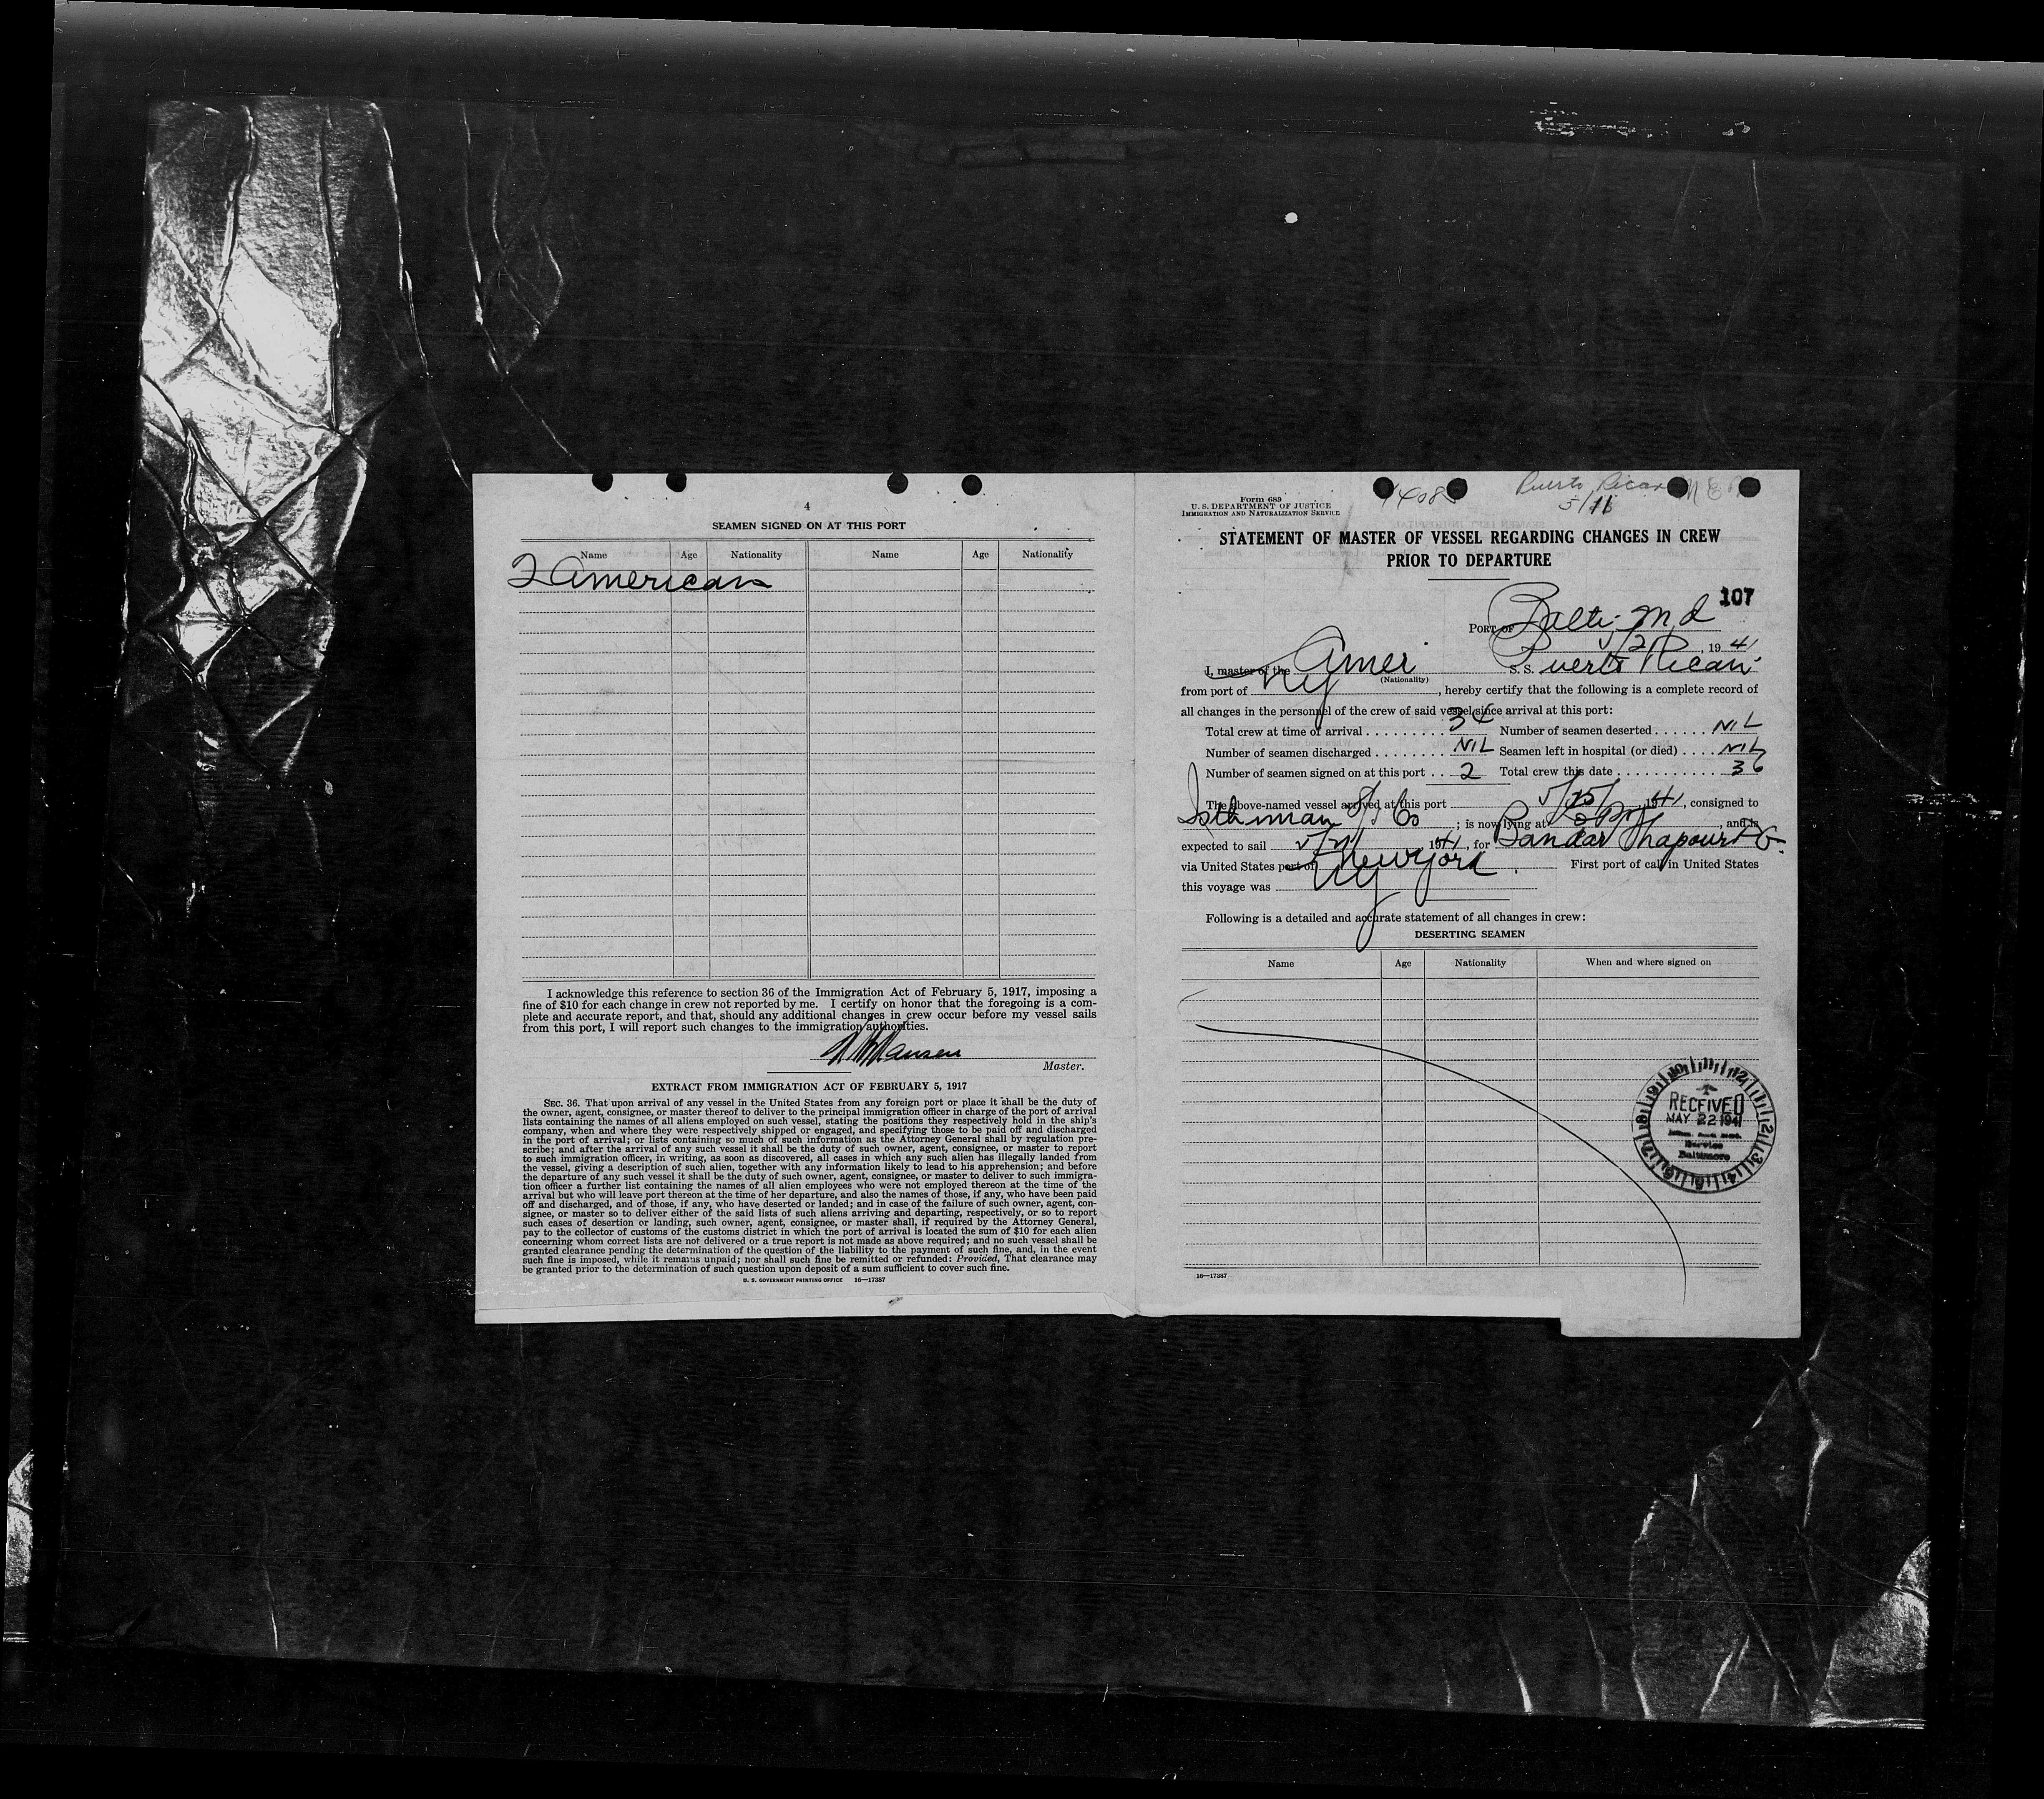 4
SEAMEN SIGNED ON AT THIS PORT
Name Age Nationality Name Age Nationality
2 American
I acknowledge this reference to section 36 of the Immigration Act of February 5, 1917, imposing a
fine of $10 for each change in crew not reported by me. I certify on honor that the foregoing is a com-
plete and accurate report, and that, should any additional changes in crew occur before my vessel sails
from this port, I will report such changes to the immigration authorities.
Hansen
Master.
EXTRACT FROM IMMIGRATION ACT OF FEBRUARY 5, 1917
SEC. 36. That upon arrival of any vessel in the United States from any foreign port or place it shall be the duty of
the owner, agent, consignee, or master thereof to deliver to the principal immigration officer in charge of the port of arrival
lists containing the names of all aliens employed on such vessel, stating the positions they respectively hold in the ship's
company, when and where they were respectively shipped or engaged, and specifying those to be paid off and discharged
in the port of arrival; or lists containing so much of such information as the Attorney General shall by regulation pre-
scribe; and after the arrival of any such vessel it shall be the duty of such owner, agent, consignee, or master to report
to such immigration officer, in writing, as soon as discovered, all cases in which any such alien has illegally landed from
the vessel, giving a description of such alien, together with any information likely to lead to his apprehension; and before
the departure of any such vessel it shall be the duty of such owner, agent, consignee, or master to deliver to such immigra-
tion officer a further list containing the names of all alien employees who were not employed thereon at the time of the
arrival but who will leave port thereon at the time of her departure, and also the names of those, if any, who have been paid
off and discharged, and of those, if any, who have deserted or landed; and in case of the failure of such owner, agent, con-
signee, or master so to deliver either of the said lists of such aliens arriving and departing, respectively, or so to report
such cases of desertion or landing, such owner, agent, consignee, or master shall, if required by the Attorney General,
pay to the collector of customs of the customs district in which the port of arrival is located the sum of $10 for each alien
concerning whom correct lists are not delivered or a true report is not made as above required; and no such vessel shall be
granted clearance pending the determination of the question of the liability to the payment of such fine, and, in the event
such fine is imposed, while it remains unpaid; nor shall such fine be remitted or refunded: Provided, That clearance may
be granted prior to the determination of such question upon deposit of a sum sufficient to cover such fine.
U. S. GOVERNMENT PRINTING OFFICE 16—17387
Form 689
U. S. DEPARTMENT OF JUSTICE
IMMIGRATION AND NATURALIZATION SERVICE
Puerto Rican
5/11
STATEMENT OF MASTER OF VESSEL REGARDING CHANGES IN CREW
PRIOR TO DEPARTURE
107
PORT OF Balti. Md
, 19 41
I, master of the Amer S. S. Puerto Rican
(Nationality)
from port of NY, hereby certify that the following is a complete record of
all changes in the personnel of the crew of said vessel since arrival at this port:
Total crew at time of arrival 34 Number of seamen deserted NIL
Number of seamen discharged NIL Seamen left in hospital (or died) NIL
Number of seamen signed on at this port 2 Total crew this date 36
The above-named vessel arrived at this port 5/15/ 1941, consigned to
Isthmian S/S Co; is now lying at , and is
expected to sail 1941, for Bandar Shapour P G.
via United States port of New York. First port of call in United States
this voyage was NY
Following is a detailed and accurate statement of all changes in crew:
DESERTING SEAMEN
Name Age Nationality When and where signed on
RECEIVED
MAY 22 1941
Service
Baltimore
16—17387